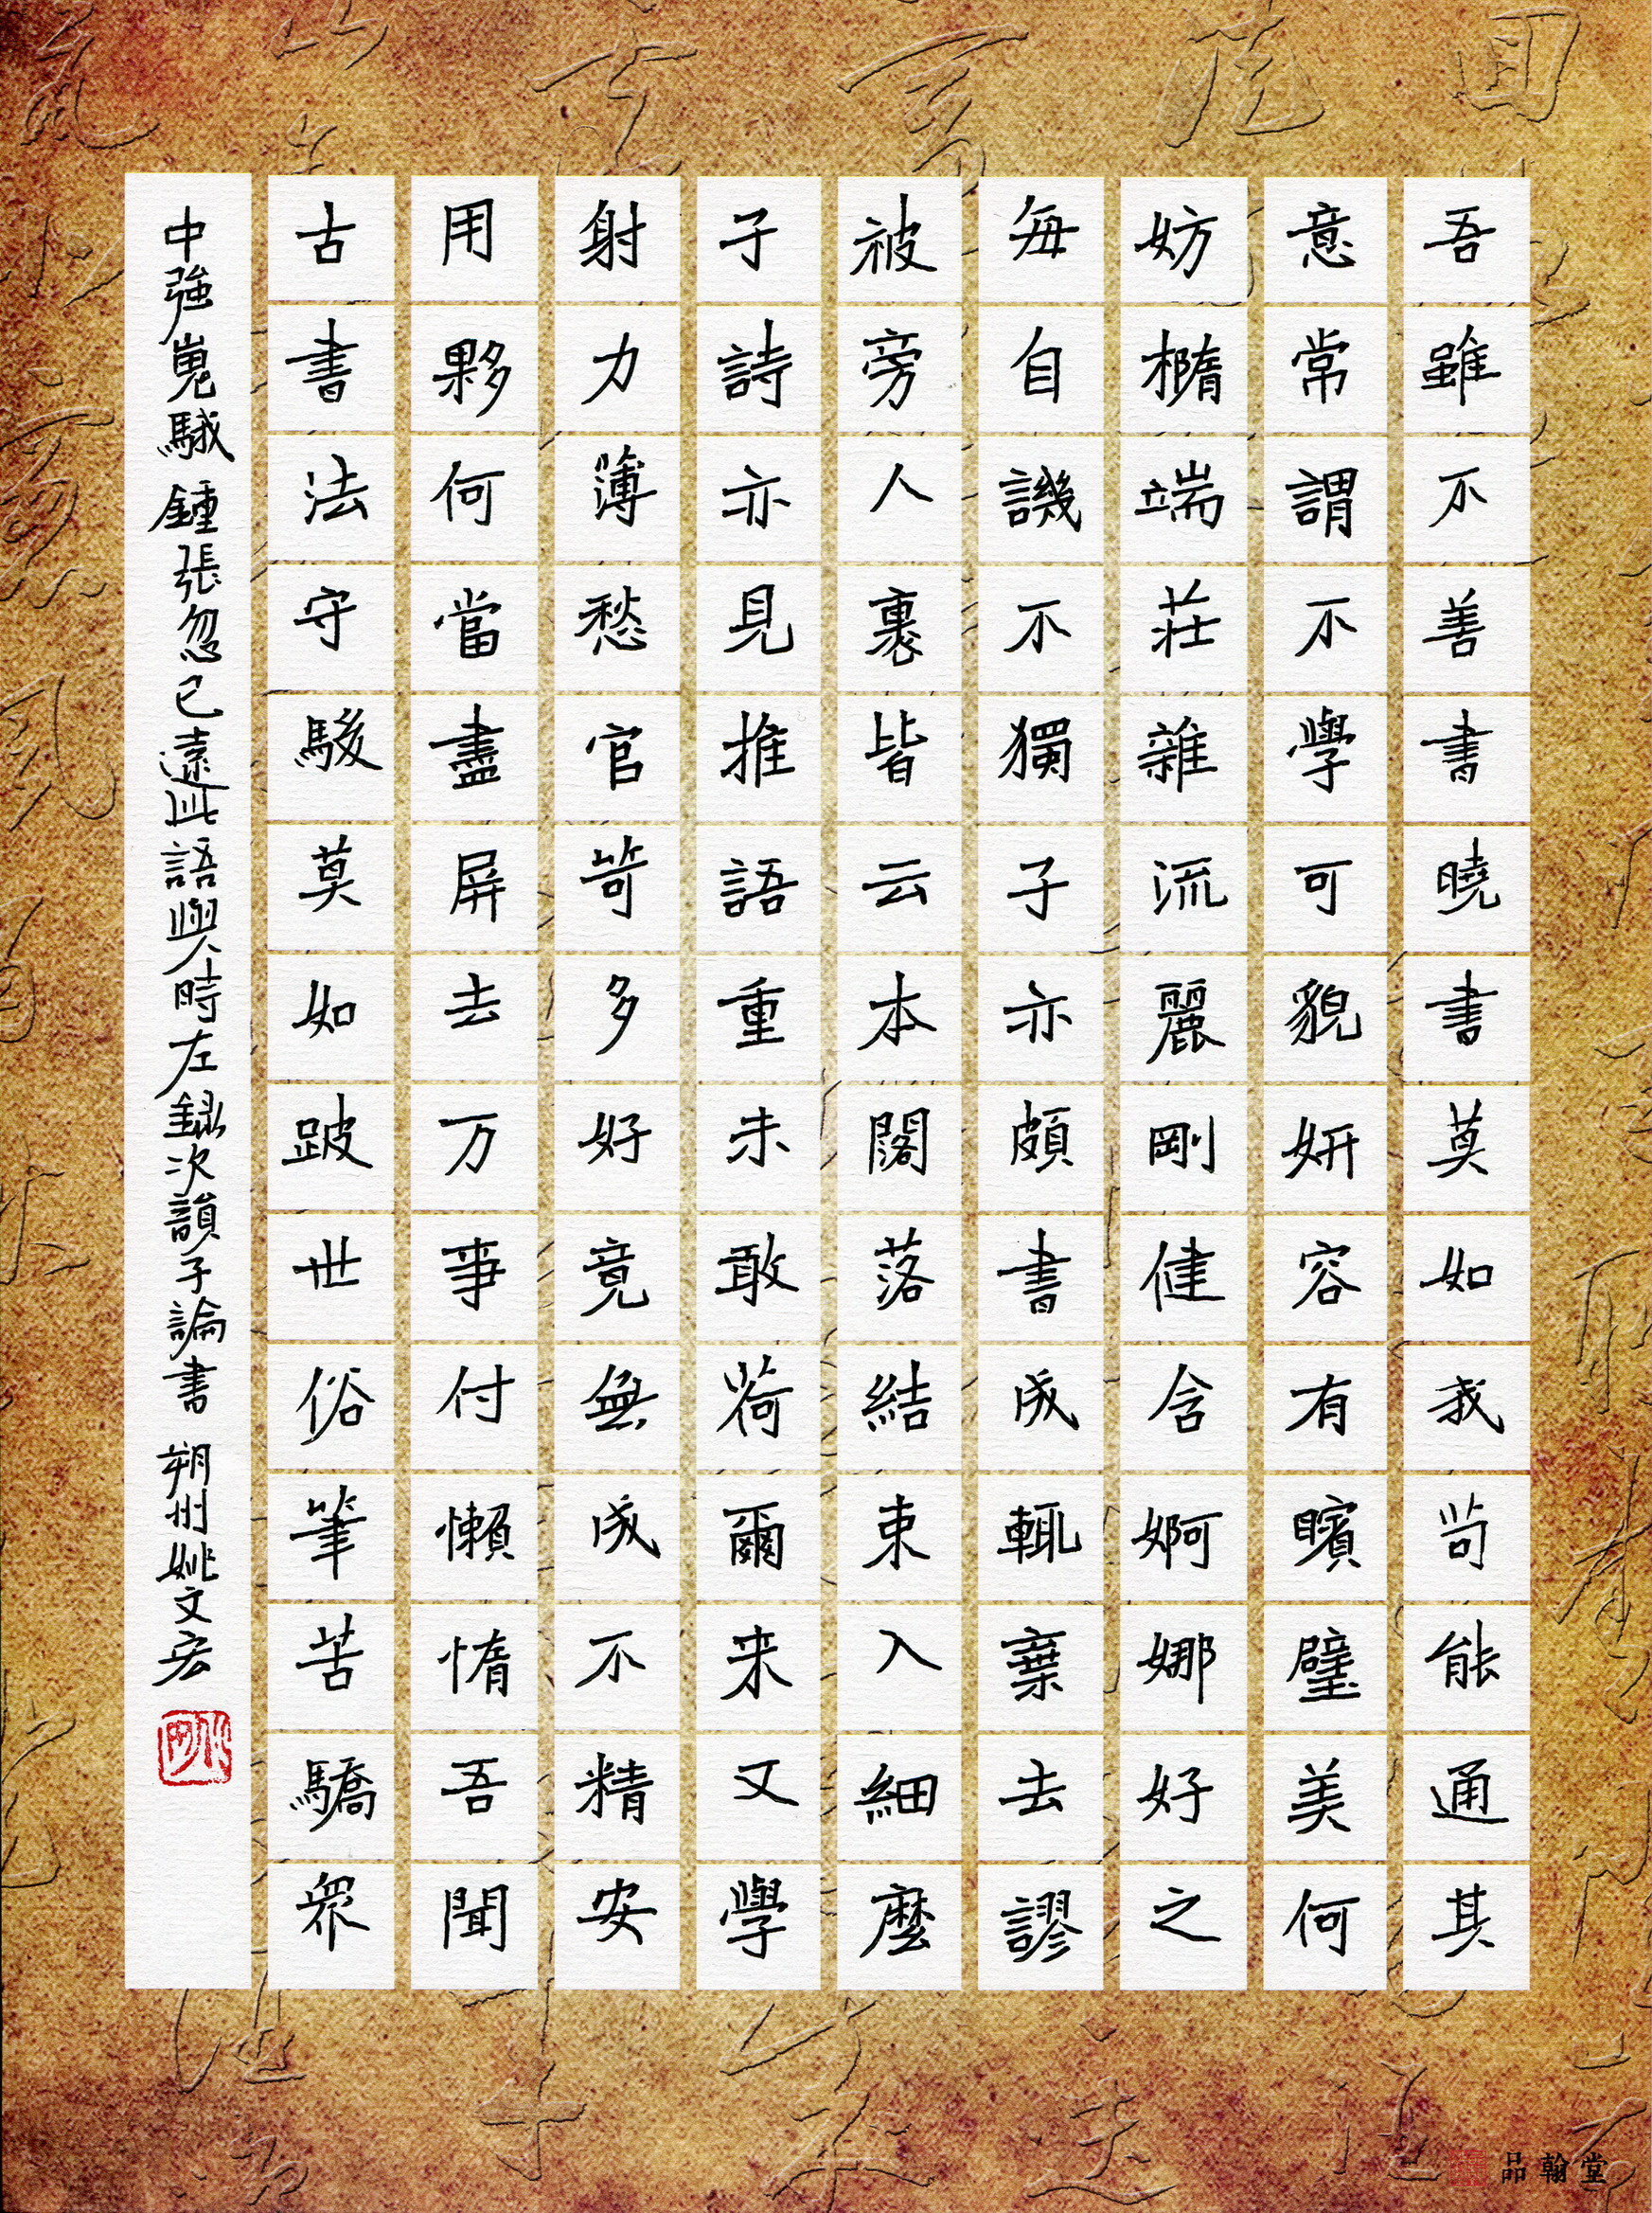 吾雖不善書曉書莫如我茍能通其
意常謂不學可貌妍容有矉璧美何
妨橢端莊雜流麗剛健含婀娜好之
每自譏不獨子亦頗書成輒棄去謬
被旁人裹皆云本闊落結束入細麼
子詩亦見推語重未敢荷爾來又學
射力薄愁官笴多好竟無成不精安
用夥何當盡屏去万事付懶惰吾聞
古書法守駿莫如跛世俗筆苦驕眾
中強嵬騀鍾張忽已遠此語與時左 錄次韻子論書 朔州姚文宏
品翰堂